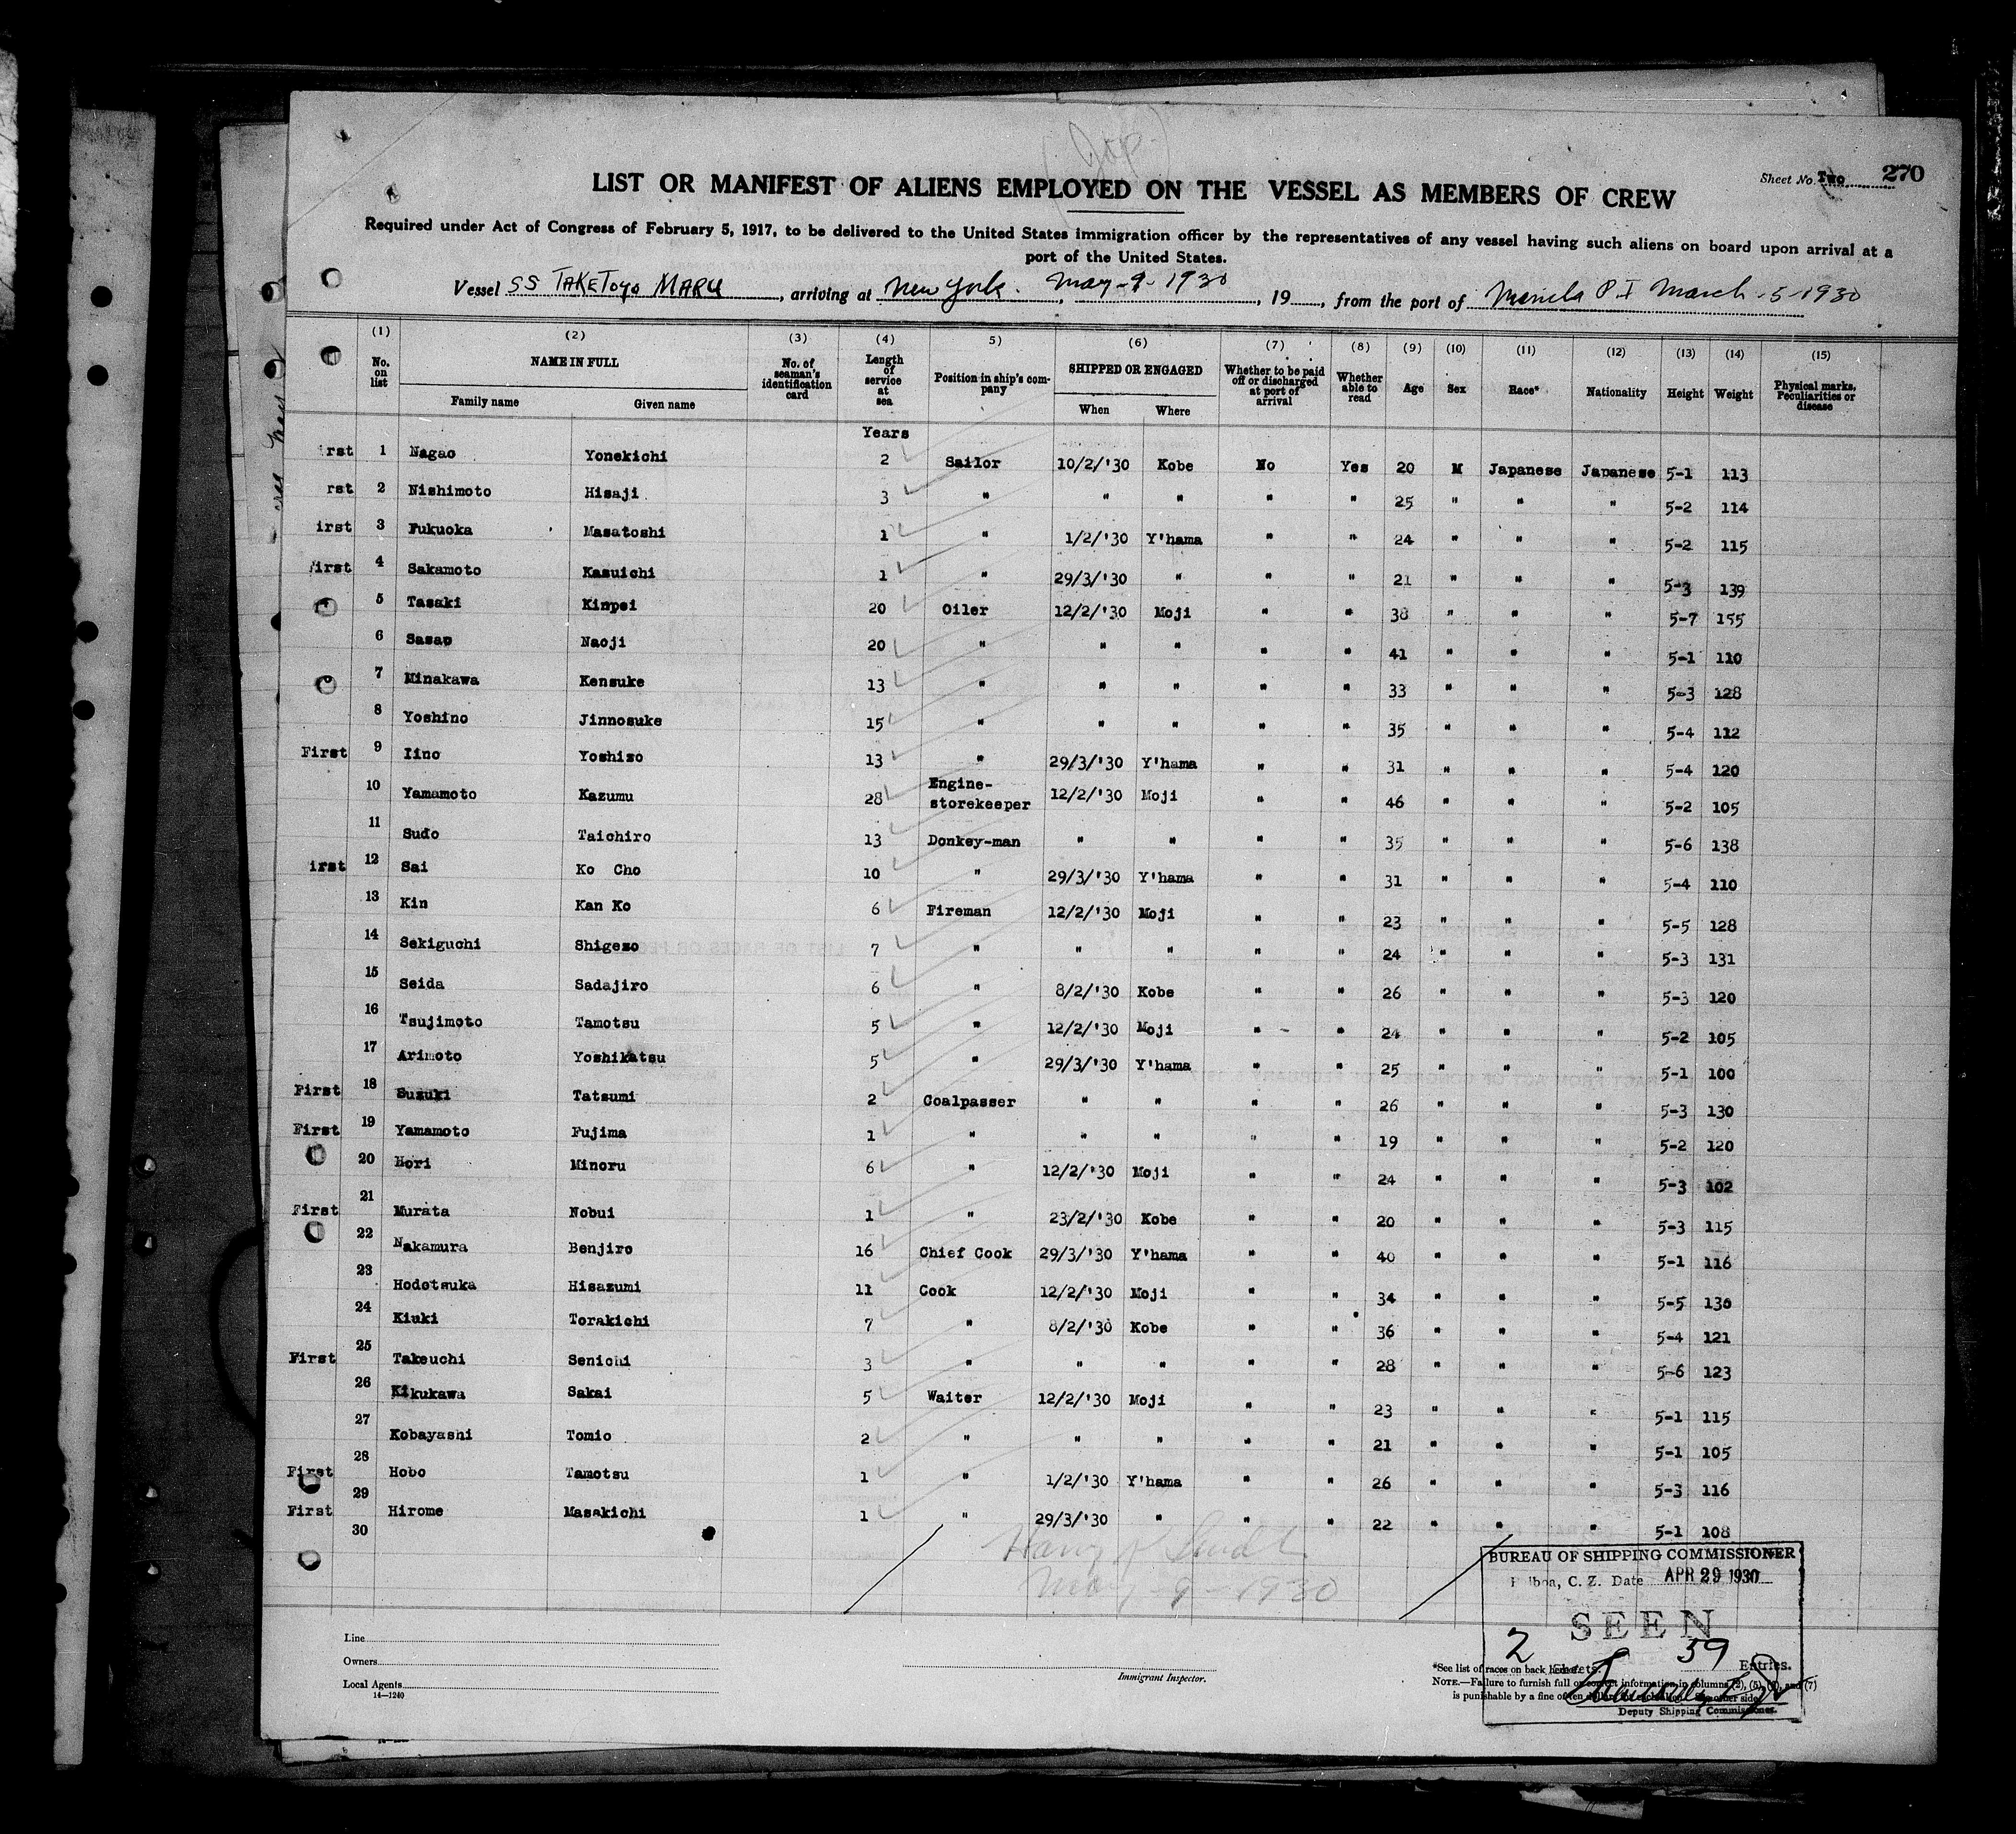 Jap.
Sheet No. Two 270
LIST OR MANIFEST OF ALIENS EMPLOYED ON THE VESSEL AS MEMBERS OF CREW
Required under Act of Congress of February 5, 1917, to be delivered to the United States immigration officer by the representatives of any vessel having such aliens on board upon arrival at a
port of the United States.
Vessel SS TAKETOYO MARU, arriving at New York. May-9-1930, 19, from the port of Manila P.I March-5-1930
(1) (2) (3) (4) 5) (6) (7) (8) (9) (10) (11) (12) (13) (14) (15)
No. on list NAME IN FULL Family name Given name No. of seaman's identification card Length of service at sea Position in ship's company SHIPPED OR ENGAGED When Where Whether to be paid off or discharged at port of arrival Whether able to read Age Sex Race* Nationality Height Weight Physical marks, Peculiarities or disease
Years
irst 1 Nagao Yonekichi 2 Sailor 10/2/'30 Kobe No Yes 20 M Japanese Japanese 5-1 113
rst 2 Nishimoto Hisaji 3 " " " " " 25 " " " 5-2 114
irst 3 Fukuoka Masatoshi 1 " 1/2/'30 Y'hama " " 24 " " " 5-2 115
First 4 Sakamoto Kasuichi 1 " 29/3/'30 " " " 21 " " " 5-3 139
5 Tasaki Kinpei 20 Oiler 12/2/'30 Moji " " 38 " " " 5-7 155
6 Sasao Naoji 20 " " " " " 41 " " " 5-1 110
7 Minakawa Kensuke 13 " " " " " 33 " " " 5-3 128
8 Yoshino Jinnosuke 15 " " " " " 35 " " " 5-4 112
First 9 Iino Yoshizo 13 " 29/3/'30 Y'hama " " 31 " " " 5-4 120
10 Yamamoto Kazumu 28 Engine-storekeeper 12/2/'30 Moji " " 46 " " " 5-2 105
11 Sudo Taichiro 13 Donkey-man " " " " 35 " " " 5-6 138
irst 12 Sai Ko Cho 10 " 29/3/'30 Y'hama " " 31 " " " 5-4 110
13 Kin Kan Ko 6 Fireman 12/2/'30 Moji " " 23 " " " 5-5 128
14 Sekiguchi Shigezo 7 " " " " " 24 " " " 5-3 131
15 Seida Sadajiro 6 " 8/2/'30 Kobe " " 26 " " " 5-3 120
16 Tsujimoto Tamotsu 5 " 12/2/'30 Moji " " 24 " " " 5-2 105
17 Arimoto Yoshikatsu 5 " 29/3/'30 Y'hama " " 25 " " " 5-1 100
First 18 Suzuki Tatsumi 2 Coalpasser " " " " 26 " " " 5-3 130
First 19 Yamamoto Fujima 1 " " " " " 19 " " " 5-2 120
20 Hori Minoru 6 " 12/2/'30 Moji " " 24 " " " 5-3 102
First 21 Murata Nobui 1 " 23/2/'30 Kobe " " 20 " " " 5-3 115
22 Nakamura Benjiro 16 Chief Cook 29/3/'30 Y'hama " " 40 " " " 5-1 116
23 Hodotsuka Hisazumi 11 Cook 12/2/'30 Moji " " 34 " " " 5-5 130
24 Kiuki Torakichi 7 " 8/2/'30 Kobe " " 36 " " " 5-4 121
First 25 Takeuchi Senichi 3 " " " " " 28 " " " 5-6 123
26 Kikukawa Sakai 5 Waiter 12/2/'30 Moji " " 23 " " " 5-1 115
27 Kobayashi Tomio 2 " " " " " 21 " " " 5-1 105
First 28 Hobo Tamotsu 1 " 1/2/'30 Y'hama " " 26 " " " 5-3 116
First 29 Hirome Masakichi 1 " 29/3/'30 " " " 22 " " " 5-1 108
30
Harry
May-9-1930
BUREAU OF SHIPPING COMMISSIONER
Balboa, C. Z. Date APR 29 1930
SEEN
2 Sheets. 59 Entries.
Deputy Shipping Commissioner.
Line
Owners
Local Agents
14—1240
Immigrant Inspector.
*See list of races on back hereof.
NOTE.—Failure to furnish full or correct information in columns (2), (5), (6), and (7)
is punishable by a fine of ten dollars for each alien. See other side.